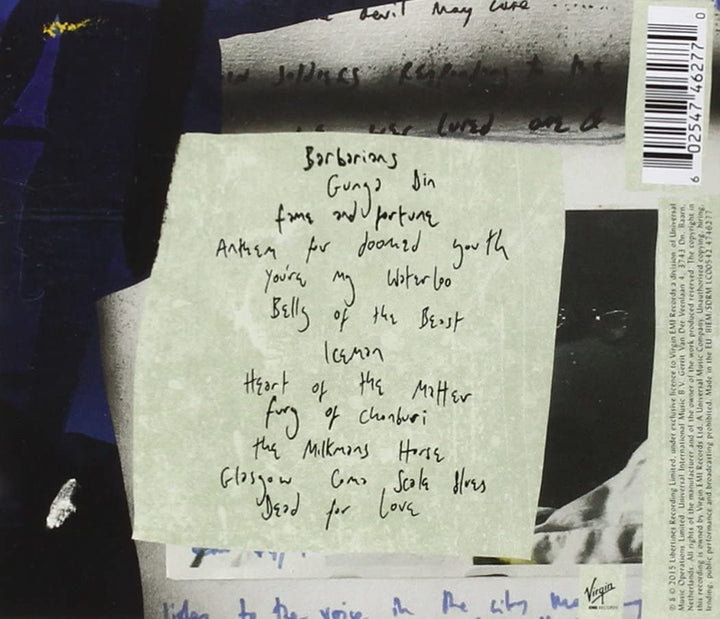 Devil May Care ....
soldiers Responding to the
lured
Barbarians
Gunga Din
fame and fortune
Anthem for doomed youth
You're my Waterloo
Belly of the Beast
Iceman
Heart of the Matter
fury of chonburi
the Milkmans Horse
Glasgow Coma Scale Blues
Dead for Love
listen to the voice in the city
6 02547 46277 0
℗ & © 2015 Libertines Recording Limited, under exclusive licence to Virgin EMI Records a division of Universal
Music Operations Limited. Universal International Music B.V. Gerrit Van Der Veenlaan 4, 3743 Dn, Baarn,
Netherlands. All rights of the manufacturer and of the owner of the work produced reserved. The copyright in
this recording is owned by Virgin EMI Records Ltd. A Universal Music Company. Unauthorised copying, hiring,
lending, public performance and broadcasting prohibited. Made in the EU. BIEM/SDRM LC00542 4746277
Virgin
EMI RECORDS